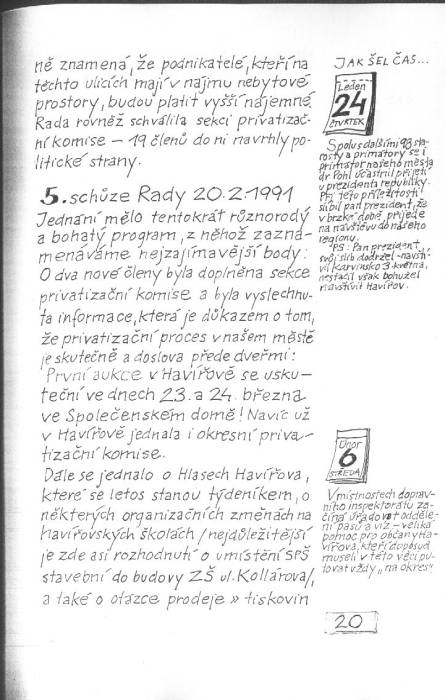 ně znamená, že podnikatelé, kteří na
těchto ulicích mají v nájmu nebytové
prostory, budou platit vyšší nájemné.
Rada rovněž schválila sekci privatizač-
ní komise – 19 členů do ní navrhly po-
litické strany.
5. schůze Rady 20.2.1991
Jednání mělo tentokrát různorodý
a bohatý program, z něhož zazna-
menáváme nejzajímavější body:
O dva nové členy byla doplněna sekce
privatizační komise a byla vyslechnu-
ta informace, která je důkazem o tom,
že privatizační proces v našem městě
je skutečně a doslova přede dveřmi:
První aukce v Havířově se usku-
teční ve dnech 23. a 24. března
ve Společenském domě! Navíc už
v Havířově jednala i okresní priva-
tizační komise.
Dále se jednalo o Hlasech Havířova,
které se letos stanou týdeníkem, o
některých organizačních změnách na
havířovských školách /nejdůležitější
je zde asi rozhodnutí o umístění SPŠ
stavební do budovy ZŠ ul. Kollárova/,
a také o otázce prodeje » tiskovin
JAK ŠEL ČAS...
Leden
24
ČTVRTEK
Spolu s dalšími 93 sta-
rosty a primátory se i
primátor našeho města
dr. Pohl účastnil přijetí
u prezidenta republiky.
Při této příležitosti
slíbil pan prezident, že
v brzké době přijede
na návštěvu do našeho
regionu.
PS: Pan prezident
svůj slib dodržel - navští-
vil Karvinsko 3. května,
nestačil však bohužel
navštívit Havířov.
Únor
6
STŘEDA
V místnostech doprav-
ního inspektorátu za-
číná úřadovat odděle-
ní pasů a víz – veliká
pomoc pro občany Ha-
vířova, kteří doposud
museli v této věci pu-
tovat vždy „na okres"
20